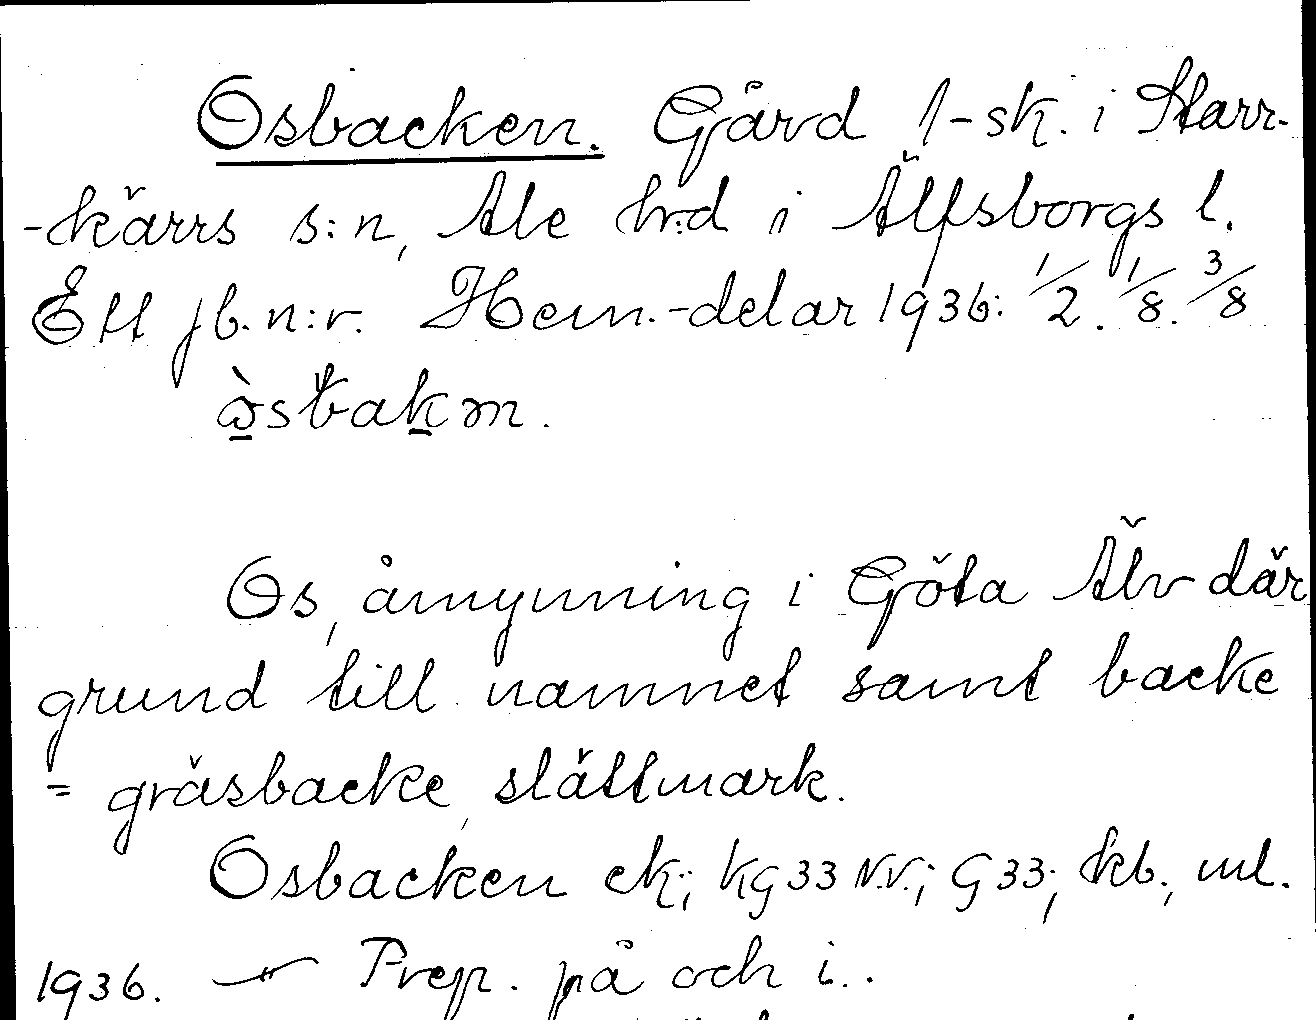 Osbacken. Gård f-sk. i Starr-
-kärrs s:n, Ale hrd i Älfsborgs l.
Ett jb.n:r. Hem.-delar 1936: 1/2. 1/8. 3/8
Os, åmynning i Göta Älv där
grund till namnet samt backe
= gräsbacke, slättmark.
Osbacken ek; kg 33 N.V.; G 33; kb., ml.
1936. —〃— Prep. på och i..